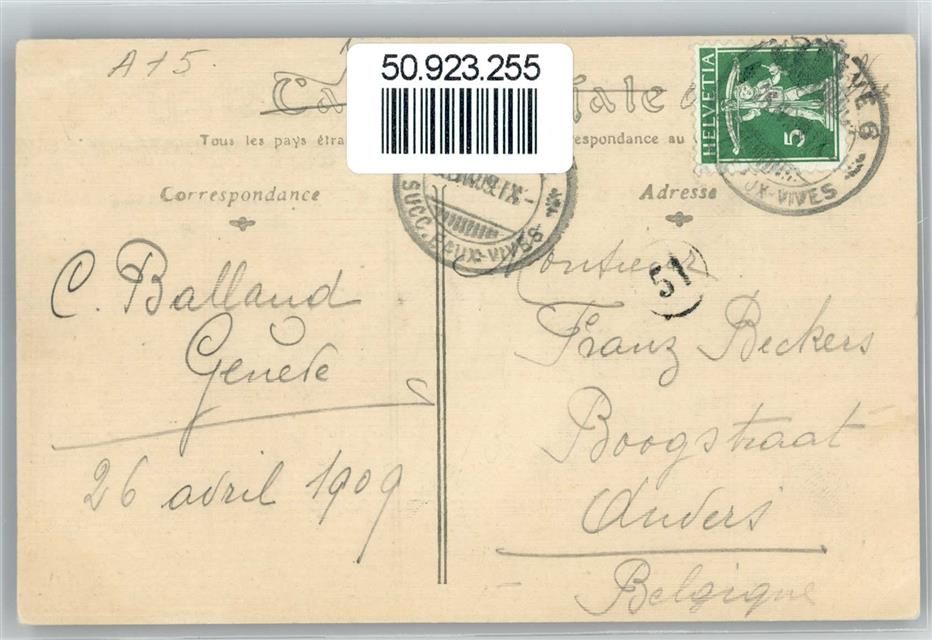 A 15.
50.923.255
Ca
tale
Tous les pays étra
espondance au
HELVETIA
5
Correspondance
Adresse
SUCC. EAUX-VIVES
UX-VIVES
6
51
C. Balland
Genève
26 avril 1909
Monsieur
Franz Beckers
Boogstraat
Anvers
Belgique